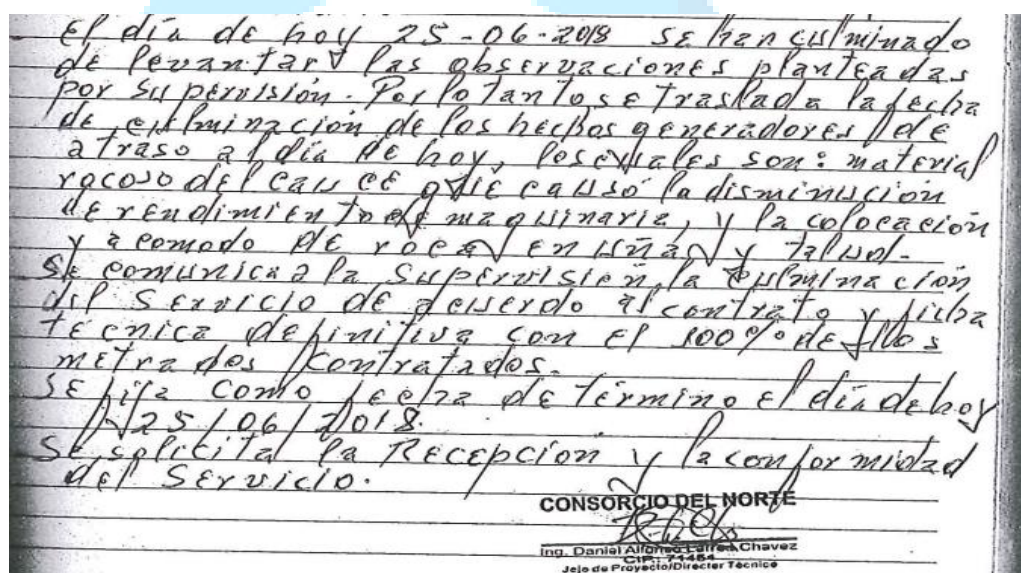 El día de hoy 25-06-2018 se han culminado
de levantar las observaciones planteadas
por Supervisión. Por lo tanto se traslada la fecha
de culminación de los hechos generadores de
atraso al día de hoy, los cuales son: material
rocoso del cauce que causó la disminución
de rendimiento de maquinaria, y la colocación
y acomodo de roca en uña y talud.
Se comunica a la Supervisión, la culminación
del Servicio de acuerdo al contrato y ficha
técnica definitiva con el 100% de los
metrados contratados.
Se fija como fecha de término el día de hoy
25/06/2018.
Se solicita la Recepción y la conformidad
del Servicio.
CONSORCIO DEL NORTE
Ing. Daniel Alfonso Chavez
CIP: 71454
Jefe de Proyecto/Director Técnico